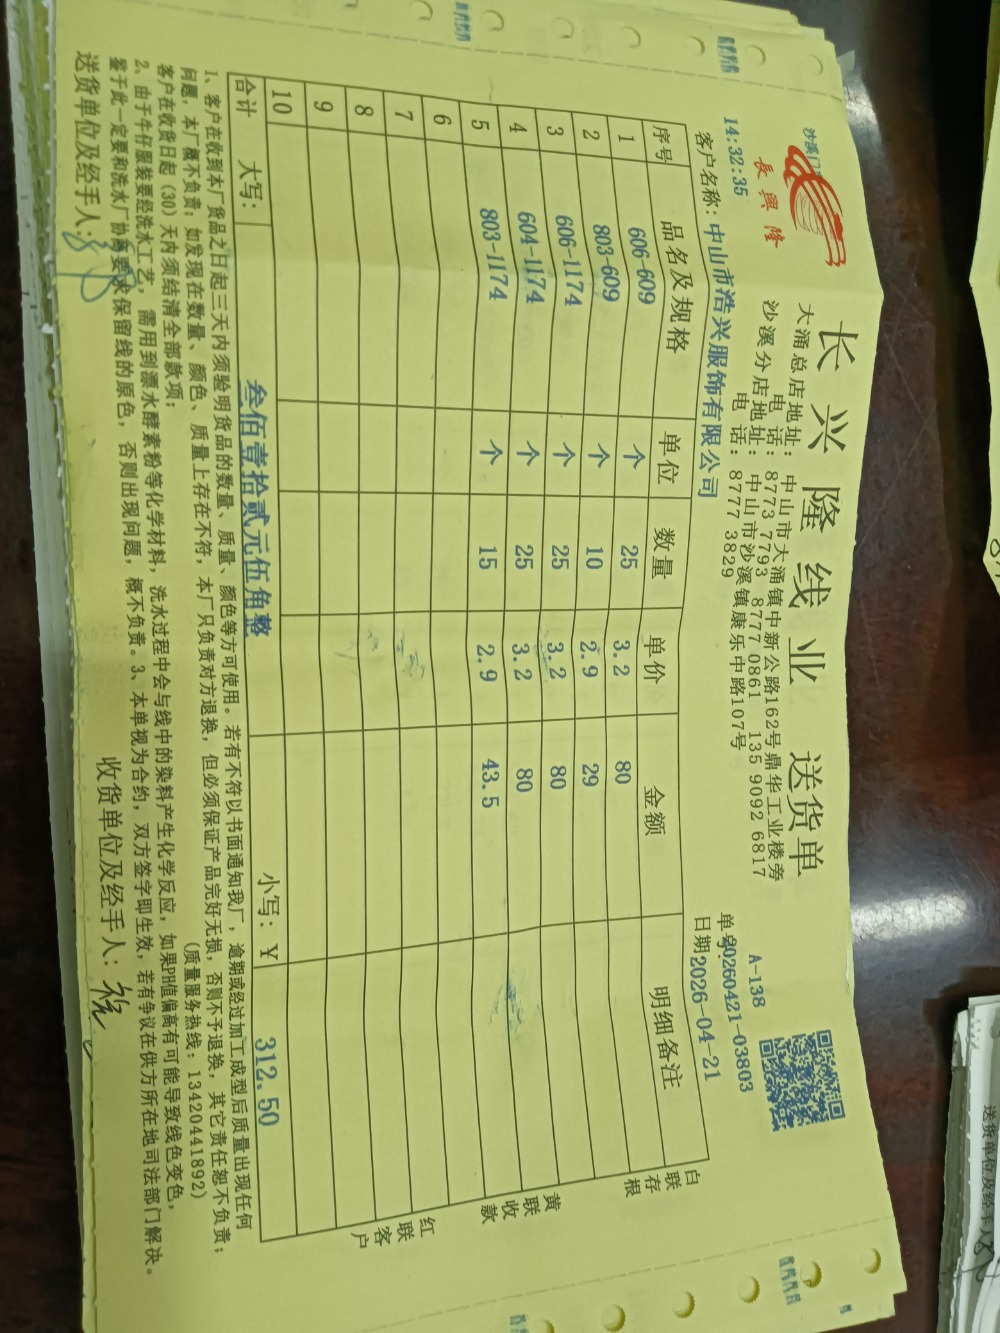 长兴隆线业 送货单
長興隆
大涌总店地址：中山市大涌镇中新公路162号鼎华工业楼旁
电话：8773 7793 8777 0861 135 9092 6817
沙溪分店地址：中山市沙溪镇康乐中路107号
电话：8777 3829
沙溪门
A-138
14:32:35
单号：20260421-03803
客户名称：中山市浩兴服饰有限公司
日期2026-04-21
序号 品名及规格 单位 数量 单价 金额 明细备注
1 606-609 个 25 3.2 80
2 803-609 个 10 2.9 29
3 606-1174 个 25 3.2 80
4 604-1174 个 25 3.2 80
5 803-1174 个 15 2.9 43.5
6
7
8
9
10
合计 大写：叁佰壹拾贰元伍角整 小写：¥ 312.50
白联存根
黄联收款
红联客户
1、客户在收到本厂货品之日起三天内须验明货品的数量、质量、颜色等方可使用。若有不符以书面通知我厂，逾期或经过加工成型后质量出现任何
问题，本厂概不负责；如发现在数量、颜色、质量上存在不符，本厂只负责对方退换，但必须保证产品完好无损，否则不予退换，其它责任恕不负责；
客户在收货日起（30）天内须结清全部款项； （质量服务热线：13420441892）
2、由于牛仔服装要经洗水工艺，需用到漂水酵素粉等化学材料，洗水过程中会与线中的染料产生化学反应，如果PH值偏高有可能导致线色变色，
鉴于此一定要和洗水厂协商要求保留线的原色，否则出现问题，概不负责。3、本单视为合约，双方签字即生效，若有争议在供方所在地司法部门解决。
送货单位及经手人：
收货单位及经手人：
送货单位及经手人